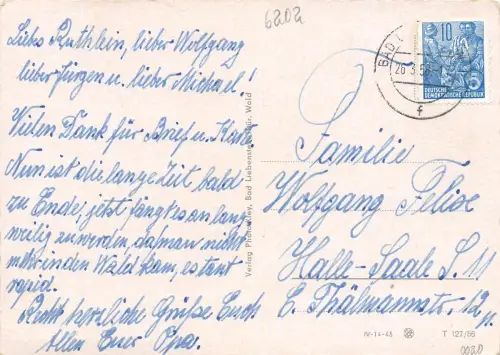 6202
Liebes Ruthlein, lieber Wolfgang
lieber Jürgen u. lieber Michael!
Vielen Dank für Brief u. Karte.
Nun ist die lange Zeit bald
zu Ende, jetzt fängt es an lang
weilig zu werden, da man nicht
mehr in den Wald kann, es taut
rapid.
Recht herzliche Grüße Euch
Allen Euer Opa.
Bad Liebenstein, Wald
BAD L
26.3.58
f
10
DEUTSCHE
DEMOKRATISCHE REPUBLIK
5
Familie
Wolfgang Felise
Halle-Saale S. 11
E. Thälmannstr. 12 p.
IV-14-45
T 127/56